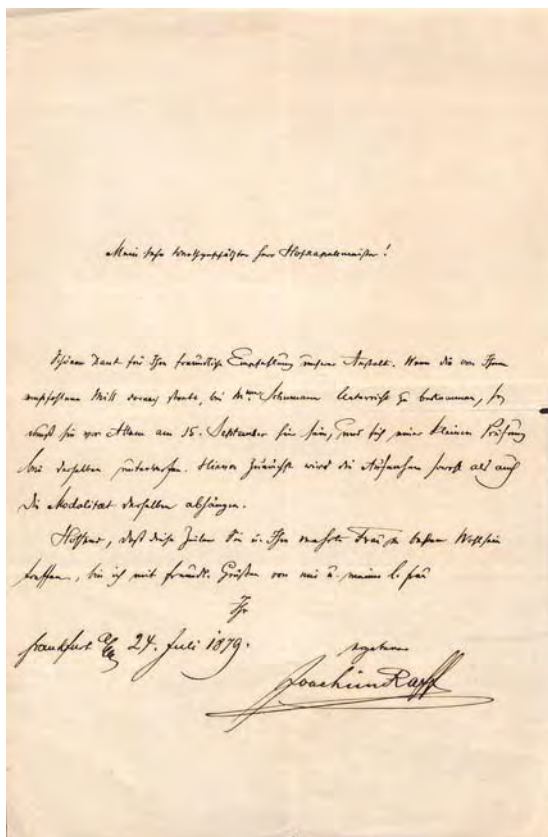 Mein sehr werthgeschätzter Herr Hofkapellmeister!
Schönen Dank für Ihre freundliche Empfehlung unserer Anstalt. Wenn die von Ihnen
empfohlene Miss darnach strebt, bei Mme Schumann Unterricht zu bekommen, so
muß sie vor Allem am 15. September hier sein, und sich einer kleinen Prüfung
bei derselben unterwerfen. Hievon zunächst wird die Aufnahme sowohl als auch
die Modalität derselben abhängen.
Hoffend, daß diese Zeilen Sie u. Ihre verehrte Frau in bestem Wohlsein
treffen, bin ich mit freundl. Grüßen von mir u. meiner l. Frau
Ihr
Frankfurt a/M 24. Juli 1879. ergebener
Joachim Raff